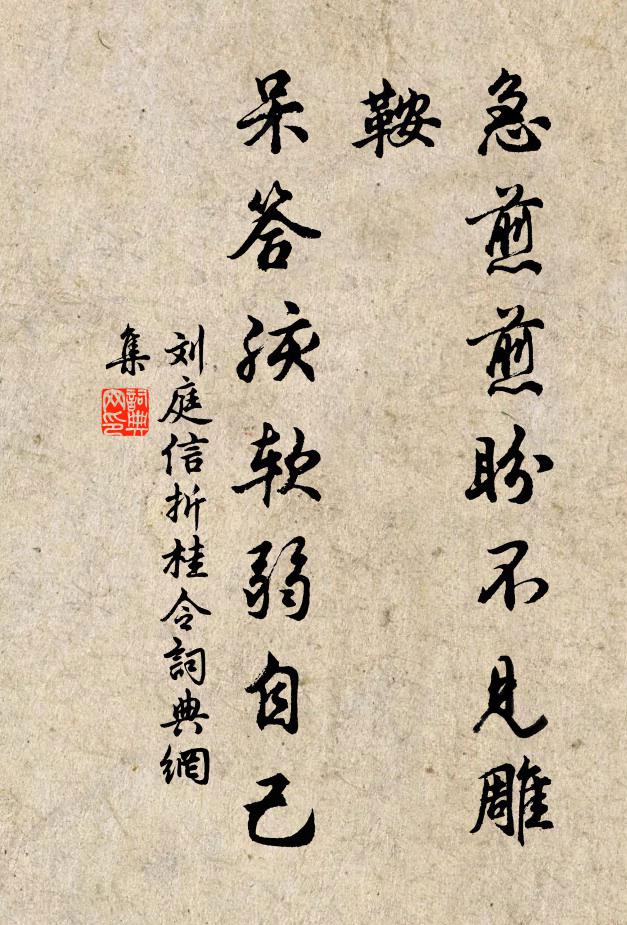 急煎煎盼不見雕
鞍
呆答孩软弱自己
刘庭信折桂令詞典網
集
詞典
网印